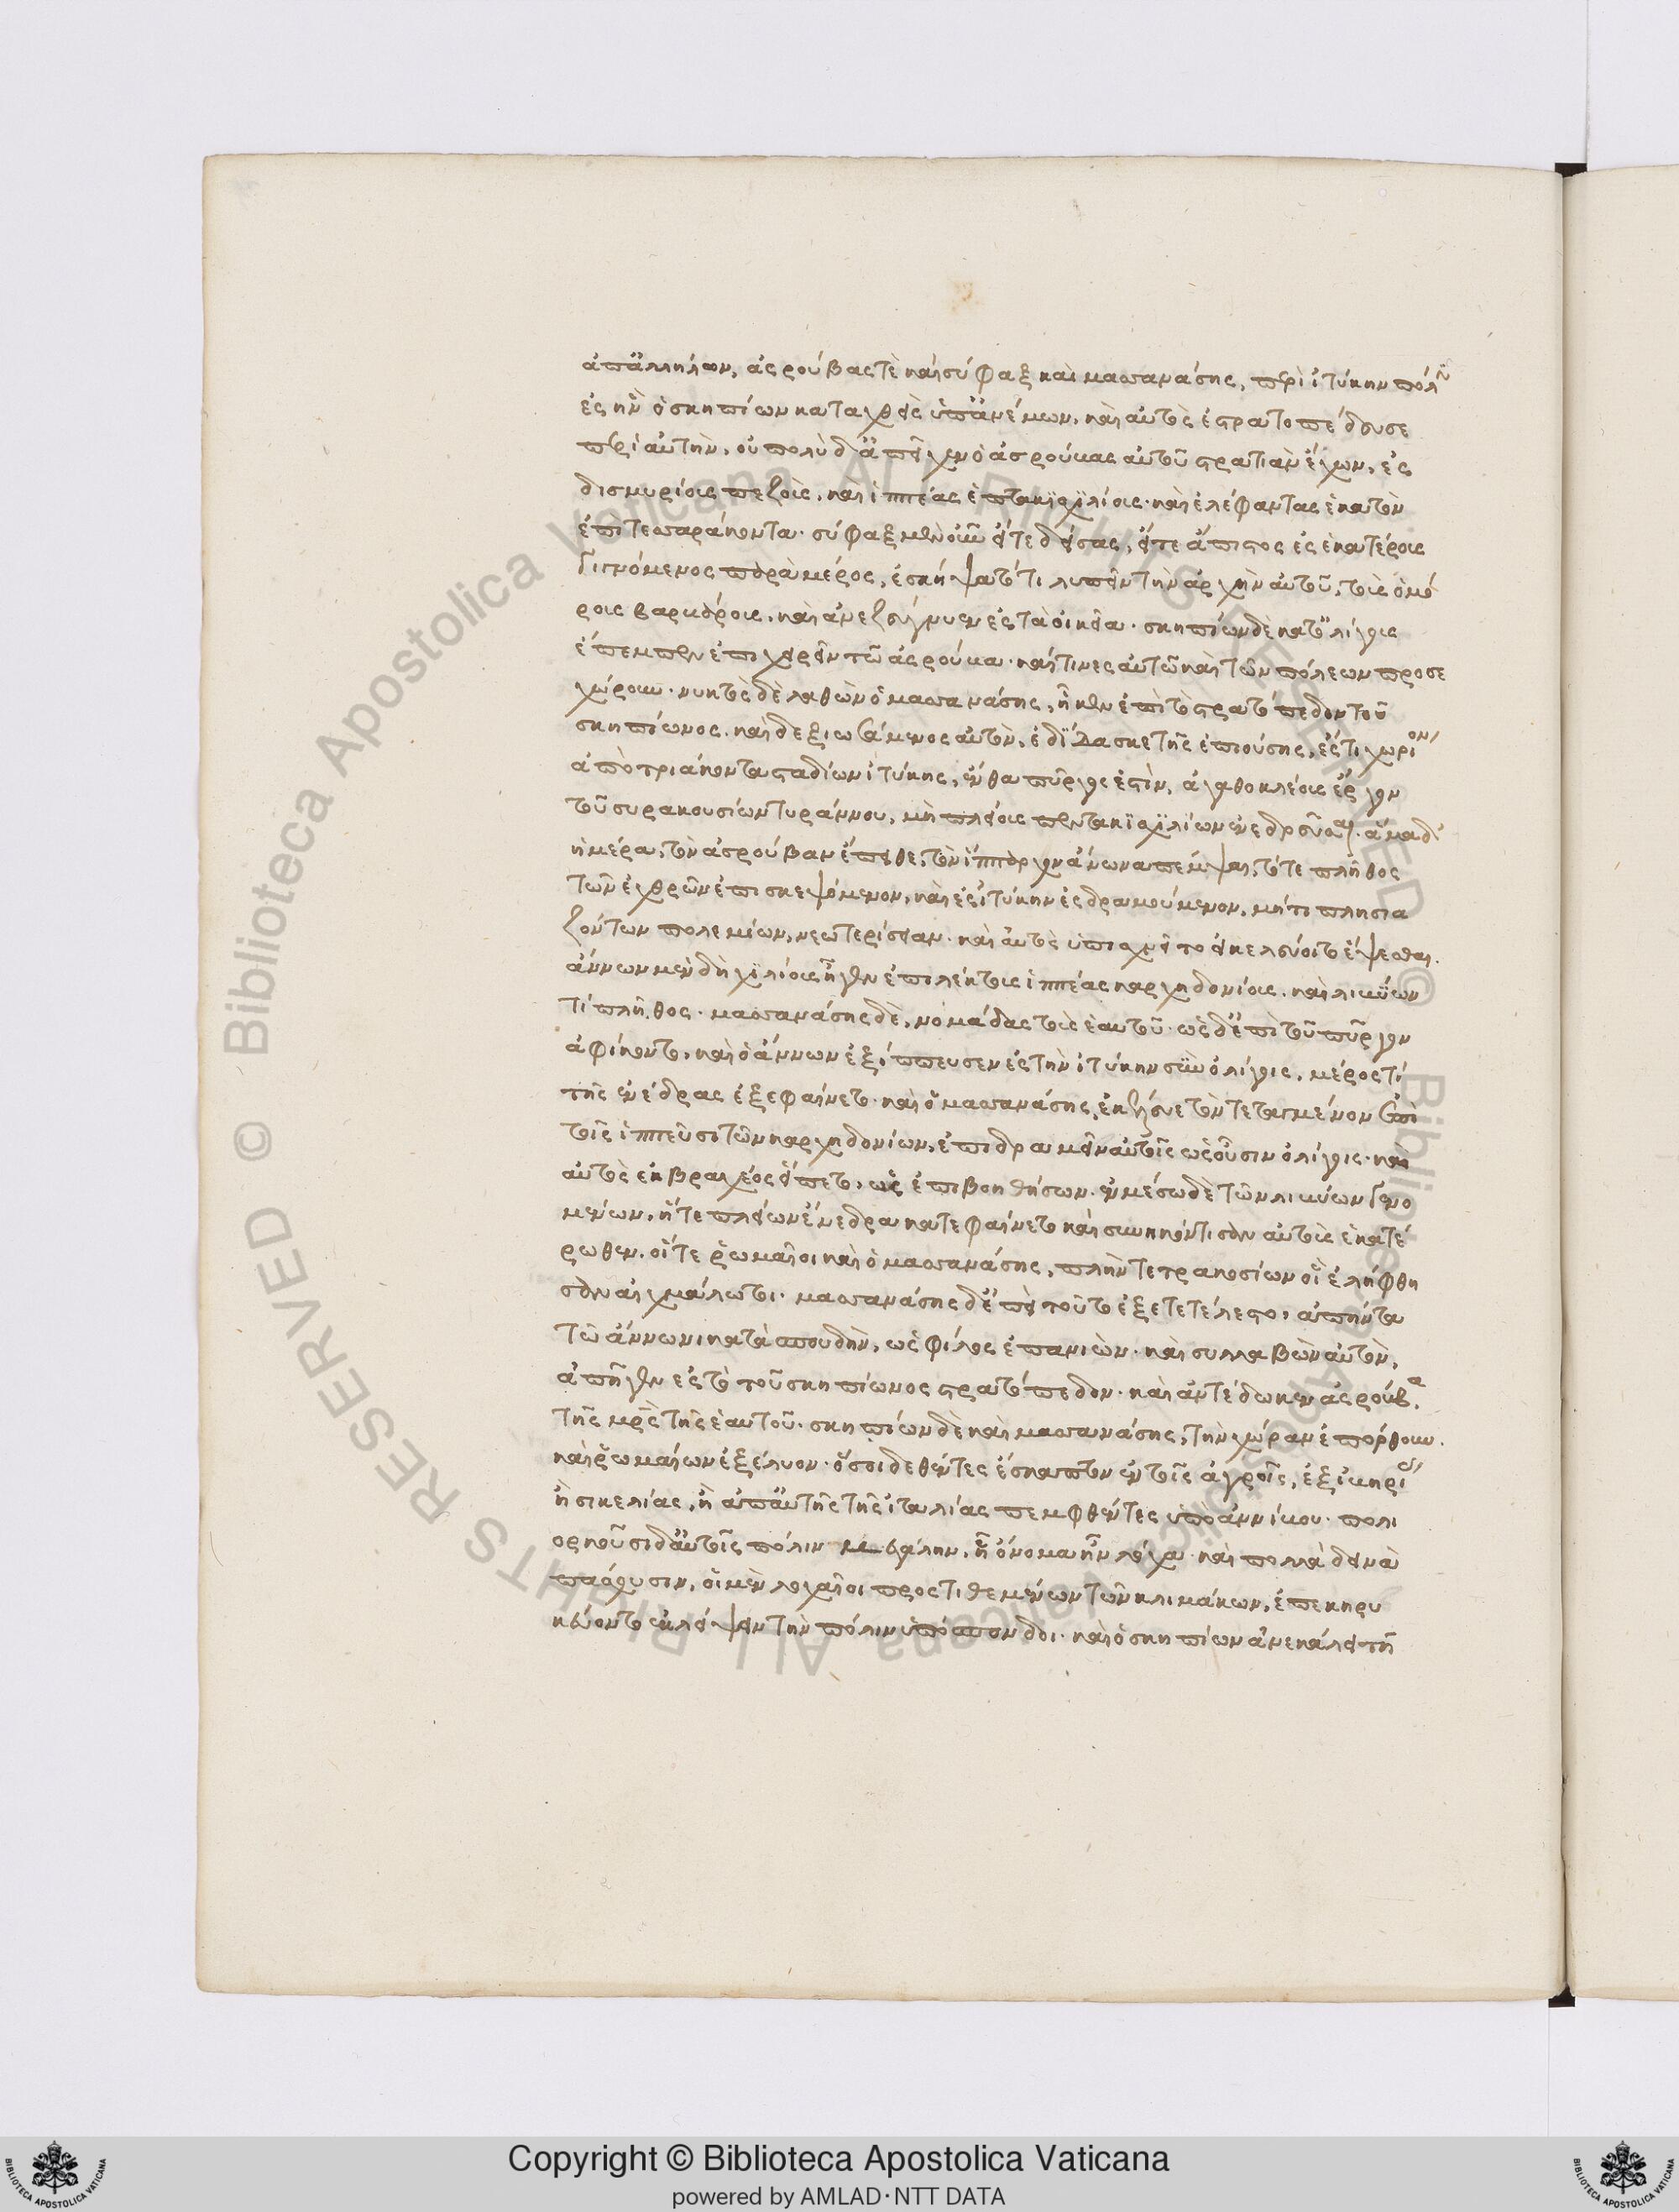 ἀπ' ἀλλήλων, ἀσρούβας τὲ καὶ σύφαξ καὶ μασσανάσης, περὶ ἰτύκην πόλιν
ἐς ἣν ὁ σκηπίων καταχθεὶς ὑπ' ἀνέμων, καὶ αὐτὸς ἐστρατοπέδευσε
περὶ αὐτὴν, οὐ πολὺ δ' ἀπεῖχεν ὁ ἀσρούκας αὐτοῦ στρατιὰν ἔχων, ἐς
δισμυρίους πεζοὺς, καὶ ἱππέας ἑπτακισχιλίους. καὶ ἐλέφαντας ἑκατὸν
ἐπὶ τεσσαράκοντα. σύφαξ μὲν οὖν εἴτε δείσας, εἴτε ἄπιστος ἐς ἑκατέρους
γιγνόμενος παρὰ μέρος, ἐσκήψατό τι λυπεῖν τὴν ἀρχὴν αὐτοῦ, τοὺς ὁμό
ρους βαρβάρους. καὶ ἀνεζεύγνυεν ἐς τὰ οἰκεῖα. σκηπίων δὲ κατ' ὀλίγους
ἔπεμπεν ἐπιχειρεῖν τῶ ἀσρούκα. καί τινες αὐτῶ καὶ τῶν πόλεων προσε
χώρουν. νυκτὸς δὲ λαθὼν ὁ μασσανάσης, ἧκεν ἐπὶ τὸ στρατόπεδον τοῦ
σκηπίωνος. καὶ δεξιωσάμενος αὐτὸν, ἐδίδασκε τῆς ἐπιούσης, ἔς τι χωρίον
ἀπὸ τριάκοντα σταδίων ἰτύκης, ἔνθα πύργος ἐστὶν, ἀγαθοκλέους ἔργον
τοῦ συρακουσίων τυράννου, μὴ πλείους πεντακισχιλίων ἐνεδρεῦσαι. ἅμα δ'
ἡμέρα, τὸν ἀσρούβαν ἔπειθε, τὸν ἵππαρχον ἄνωνα πέμψαι, τό τε πλῆθος
τῶν ἐχθρῶν ἐπισκεψόμενον, καὶ ἐς ἰτύκην ἐσδραμούμενον, μή τι πλησια
ζόντων πολεμίων, νεωτερίσειαν. καὶ αὐτὸς ὑπισχνεῖτο εἰ κελεύοιτο ἕψεσθαι.
ἄννων μὲν δὴ χιλίους ἦγεν ἐπιλέκτους ἱππέας καρχηδονίους. καὶ λιβύων
τί πλῆθος. μασσανάσης δὲ, νομάδας τοὺς ἑαυτοῦ. ὡς δ' ἐπὶ τοῦ πύργον
ἀφίκοντο, καὶ ὁ ἄννων ἐξίππευσεν ἐς τὴν ἰτύκην σὺν ὀλίγοις, μέρος τί
τῆς ἐνέδρας ἐξεφαίνετο. καὶ ὁ μασσανάσης, ἐκέλευε τὸν τεταγμένον ἐπὶ
τοῖς ἱππεῦσι τῶν καρχηδονίων, ἐπιδραμεῖν αὐτοῖς ὡς οὖσιν ὀλίγοις. καὶ
αὐτὸς ἐκ βραχέος εἵπετο, ὡς ἐπιβοηθήσων. ἐν μέσω δὲ τῶν λιβύων γενο
μένων, ἥ τε πλείων ἐνέδρα κατεφαίνετο καὶ συνηκόντισαν αὐτοὺς ἑκατέ
ρωθεν. οἵ τε ῥωμαῖοι καὶ ὁ μασσανάσης, πλὴν τετρακοσίων οἳ ἐλήφθη
σαν αἰχμάλωτοι. μασσανάσης δ' ἐπεὶ τοῦτο ἐξετετέλεστο, ἀπήντα
τῶ ἄννωνι κατὰ σπουδὴν, ὡς φίλος ἐπανιὼν. καὶ συλλαβὼν αὐτὸν,
ἀπῆγεν ἐς τὸ τοῦ σκηπίωνος στρατόπεδον. καὶ ἀντέδωκεν ἀσρούβα
τῆς μρὸς τῆς ἑαυτοῦ. σκηπίων δὲ καὶ μασσανάσης, τὴν χώραν ἐπόρθουν.
καὶ ῥωμαίων ἐξέλυον. ὅσοι δεθέντες ἔσκαπτον ἐν τοῖς ἀγροῖς, ἐξ ἰβηρίας
ἢ σικελίας, ἢ ἀπ' αὐτῆς τῆς ἰταλίας πεμφθέντες ὑπὸ ἀννίβου. πολι
ορκοῦσι δ' αὐτοῖς πόλιν μεγάλην, ἧ ὄνομα ἦν λόχα. καὶ πολλὰ δεινὰ
πάσχουσιν, οἱ μὲν λοχαῖοι προστιθεμένων τῶν κλιμάκων, ἐπεκηρυ
κεύοντο ἐκλείψειν τὴν πόλιν ὑπόσπονδοι. καὶ ὁ σκηπίων ἀνεκάλει τῆ